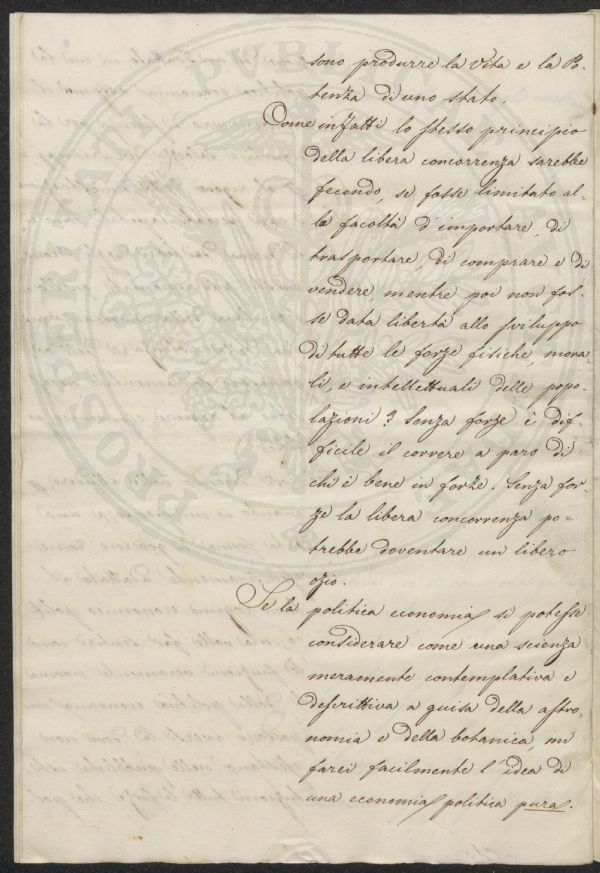 sono produrre la vita e la Po-
tenza di uno stato.
Come infatti lo stesso principio
della libera concorrenza sarebbe
fecondo, se fosse limitato al-
le facoltà d'importare, di
trasportare, di comprare e di
vendere, mentre poi non fos-
se data libertà allo sviluppo
di tutte le forze fisiche, mora-
li, e intellettuali delle popo-
lazioni? Senza forze è dif-
ficile il correre a paro di
chi è bene in forze. Senza for-
ze la libera concorrenza po=
trebbe doventare un libero
ozio.
Se la politica economia si potesse
considerare come una scienza
meramente contemplativa e
descrittiva a guisa della astro-
nomia e della botanica, mi
farei facilmente l'idea di
una economia politica pura.